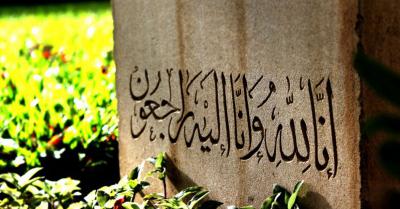 إنا لله وانا اليه راجعون